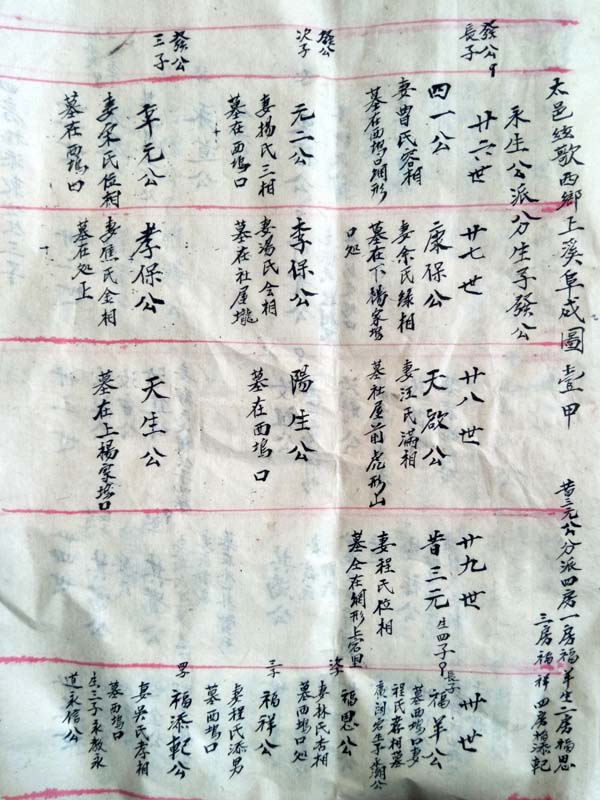 太邑絃歌西鄉上溪阜成圖壹甲
永生公派分生子發公
昔三元公分派四房一房福羊生二房福思
三房福祥四房福添乾
廿六世
發公
長子
四一公
妻曹氏容相
墓在西塢口網形
發公
次子
元二公
妻揚氏三相
墓在西塢口
發公
三子
辛元公
妻宋氏位相
墓在西塢口
廿七世
康保公
妻余氏綠相
墓在下楊家塢
口处
季保公
妻湯氏会相
墓在社屋壠
孝保公
妻焦氏全相
墓在处上
廿八世
天啟公
妻汪氏滿相
墓社屋前虎形山
陽生公
墓在西塢口
天生公
墓在上楊家塢口
廿九世
昔三元
生四子
妻程氏位相
墓仝在網形上穴
卅世
長子
福羊公
墓西塢口妻
程氏春相墓
福思公
妻林氏杏相
墓西塢口处
三子
福祥公
妻程氏添男
墓西塢口
福添乾公
妻吳氏孝相
墓西塢口
生三子永教永
道永信公